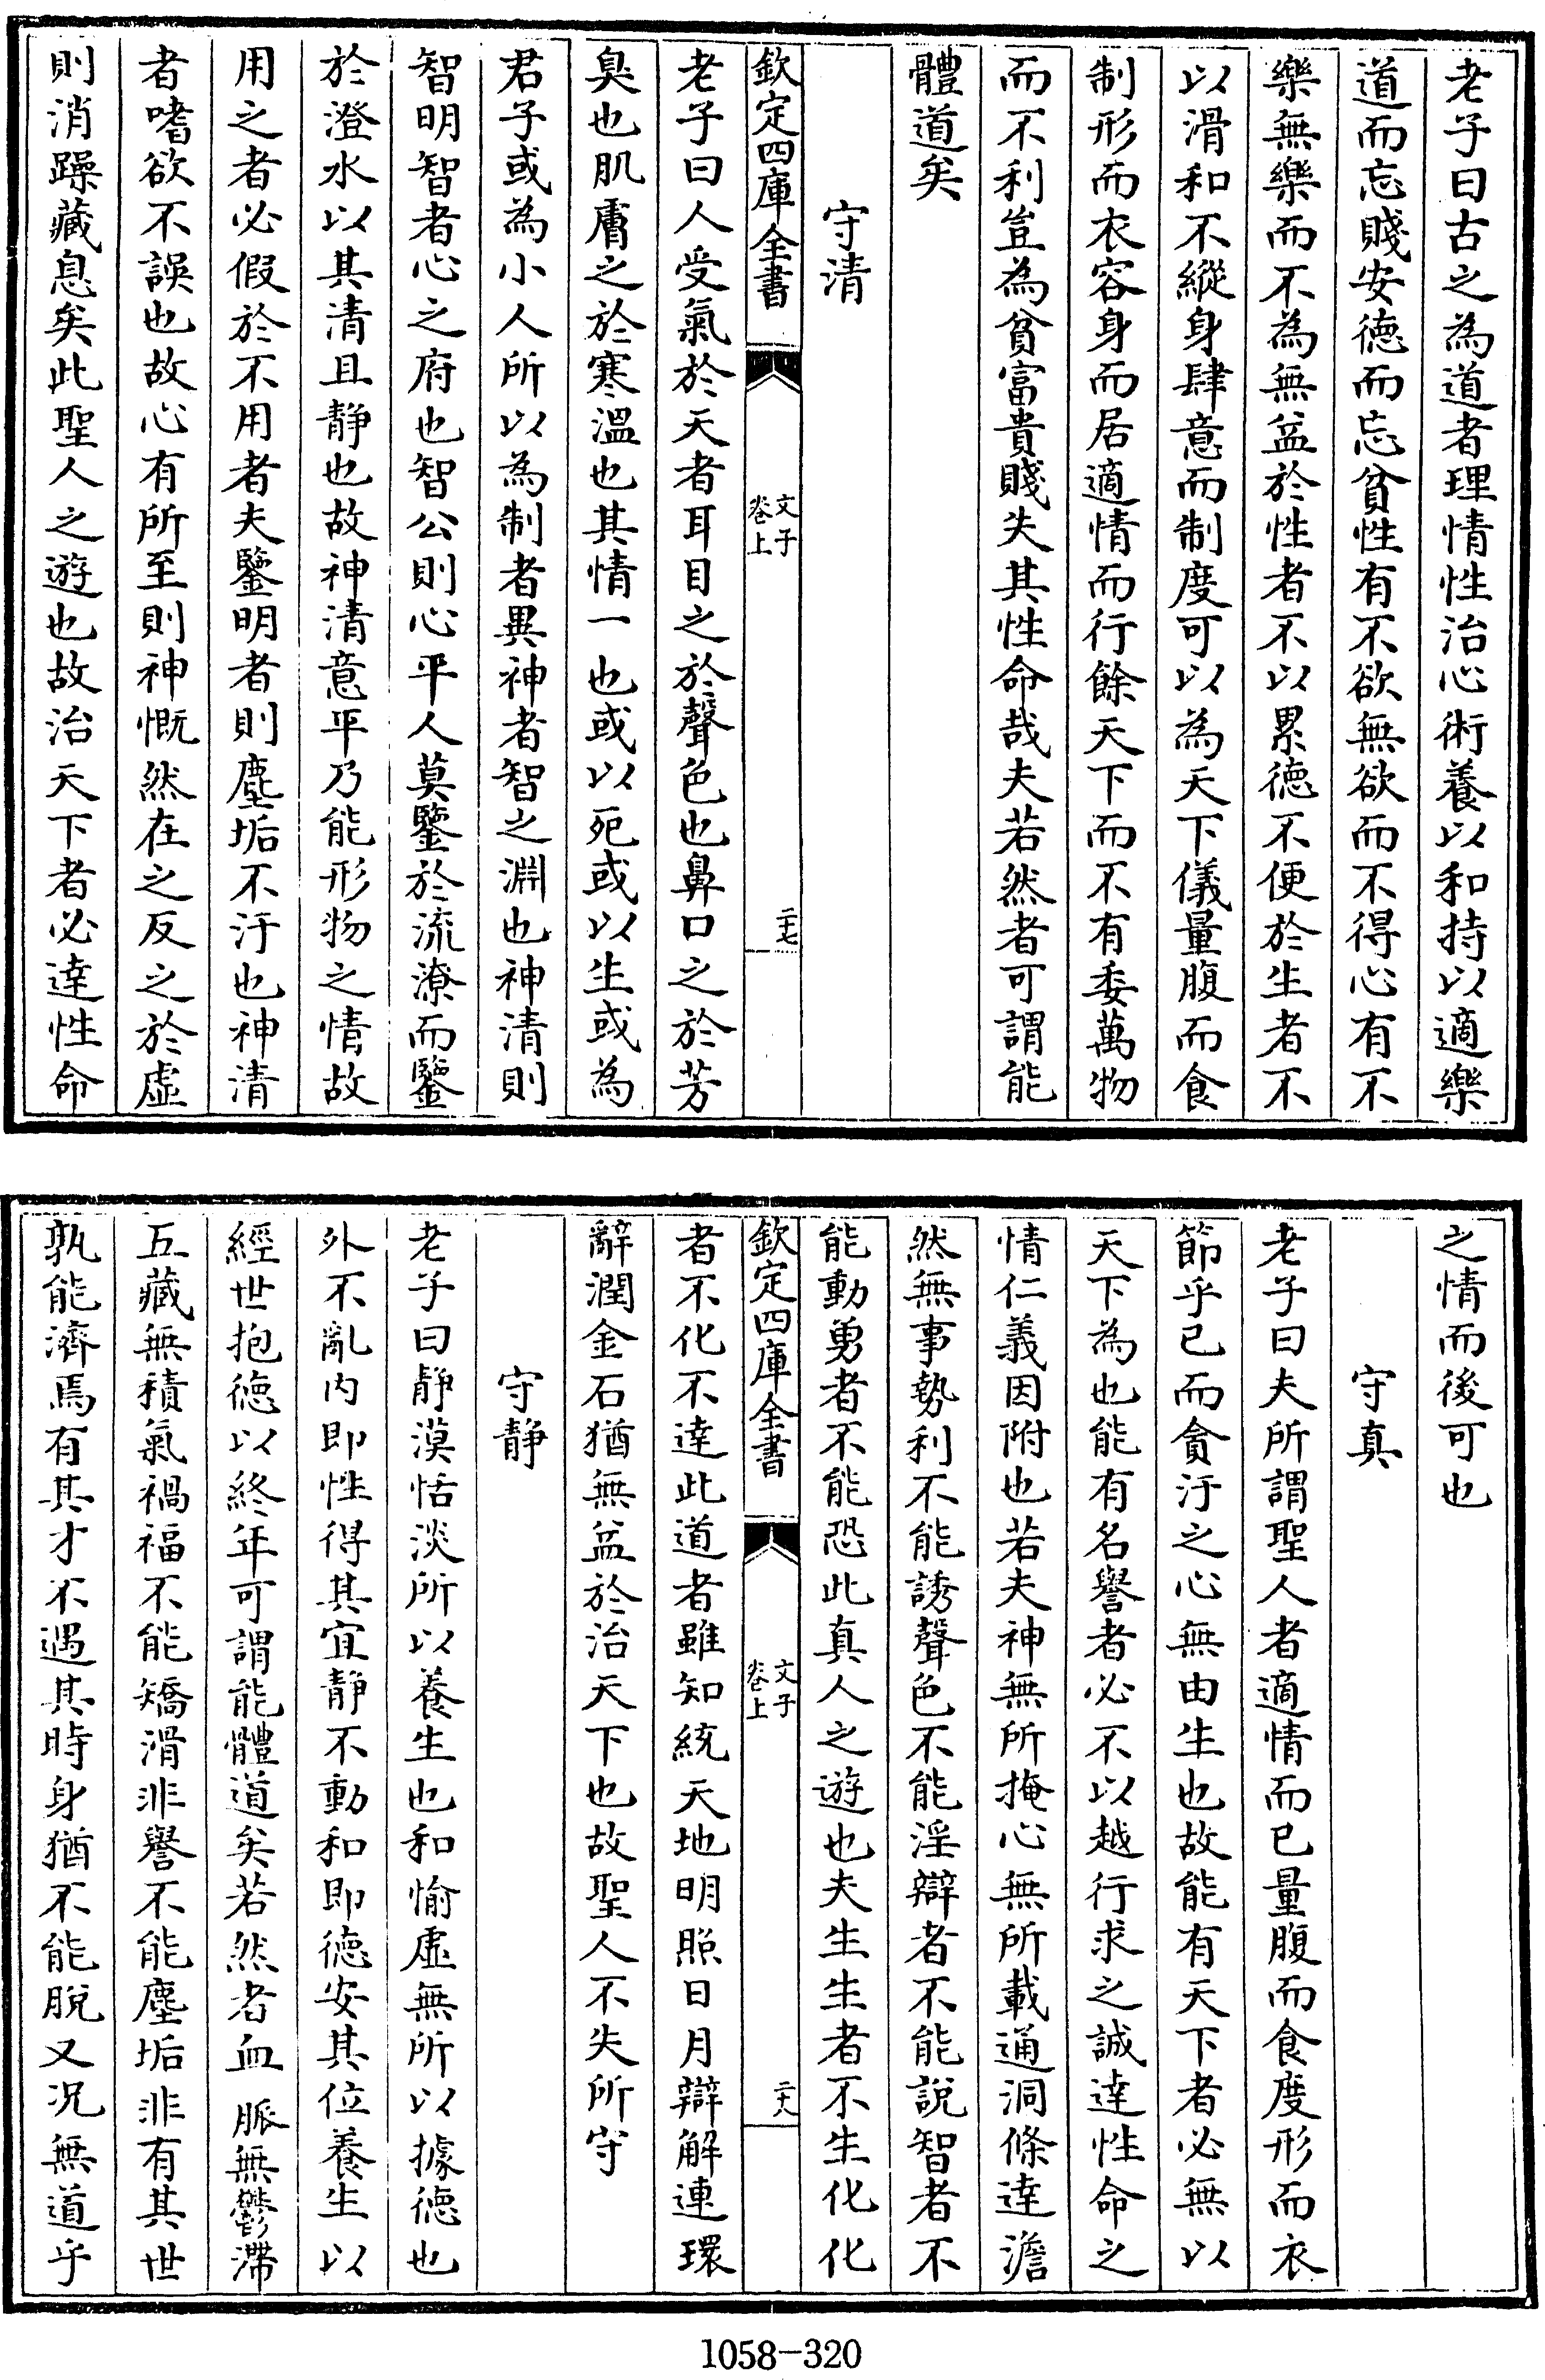 老子曰古之為道者理情性治心術養以和持以適樂
道而忘賤安德而忘貧性有不欲無欲而不得心有不
樂無樂而不為無益於性者不以累德不便於生者不
以滑和不縱身肆意而制度可以為天下儀量腹而食
制形而衣容身而居適情而行餘天下而不有委萬物
而不利豈為貧富貴賤失其性命哉夫若然者可謂能
體道矣
守清
欽定四庫全書
文子
卷上
二十七
老子曰人受氣於天者耳目之於聲色也鼻口之於芳
臭也肌膚之於寒溫也其情一也或以死或以生或為
君子或為小人所以為制者異神者智之淵也神清則
智明智者心之府也智公則心平人莫鑒於流潦而鑒
於澄水以其清且靜也故神清意平乃能形物之情故
用之者必假於不用者夫鑒明者則塵垢不汙也神清
者嗜欲不誤也故心有所至則神慨然在之反之於虛
則消躁藏息矣此聖人之遊也故治天下者必達性命
之情而後可也
守真
老子曰夫所謂聖人者適情而已量腹而食度形而衣
節乎己而貪汙之心無由生也故能有天下者必無以
天下為也能有名譽者必不以越行求之誠達性命之
情仁義因附也若夫神無所掩心無所載通洞條達澹
然無事勢利不能誘聲色不能淫辯者不能說智者不
能動勇者不能恐此真人之遊也夫生生者不生化化
欽定四庫全書
文子
卷上
二十八
者不化不達此道者雖知統天地明照日月辯解連環
辭潤金石猶無益於治天下也故聖人不失所守
守靜
老子曰靜漠恬淡所以養生也和愉虛無所以據德也
外不亂內即性得其宜靜不動和即德安其位養生以
經世抱德以終年可謂能體道矣若然者血脈無鬱滯
五藏無積氣禍福不能矯滑非譽不能塵垢非有其世
孰能濟焉有其才不遇其時身猶不能脫又況無道乎
1058-320